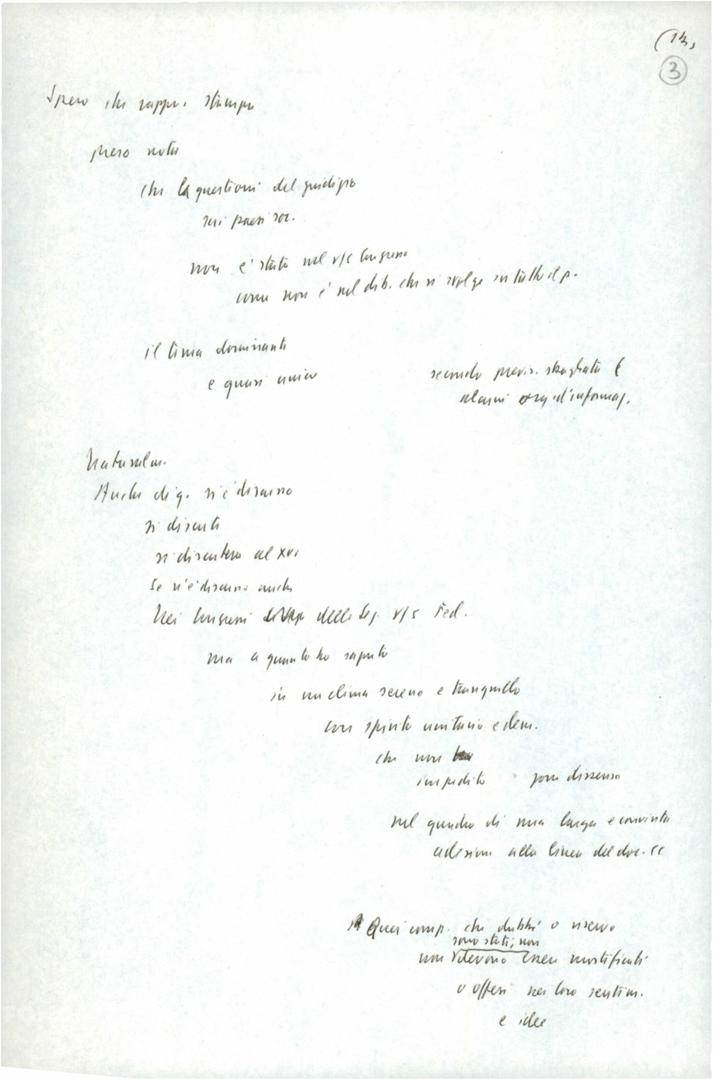 (13)
3
Spero che rappr. stampa
preso nota
che la questione del giudizio
sui paesi soc.
non è stata nel v/s Congresso
come non è nel dib. che si svolge in tutto il p.
il tema dominante
e quasi unico
secondo previs. sbagliata
alcuni org. d'informaz.
Naturalm.
Anche di q. si è discusso
si discute
si discuterà al XVI
Se n'è discusso anche
Nei Congressi delle Sez. v/s Fed.
ma a quanto ho saputo
in un clima sereno e tranquillo
con spirito unitario e dem.
che non
impedito dissenso
nel quadro di una larga e convinta
adesione alla linea del doc. CC
Quei comp. che dubbi o riserve
sono stati, non
non devono essere mortificati
o offesi nei loro sentim.
e idee